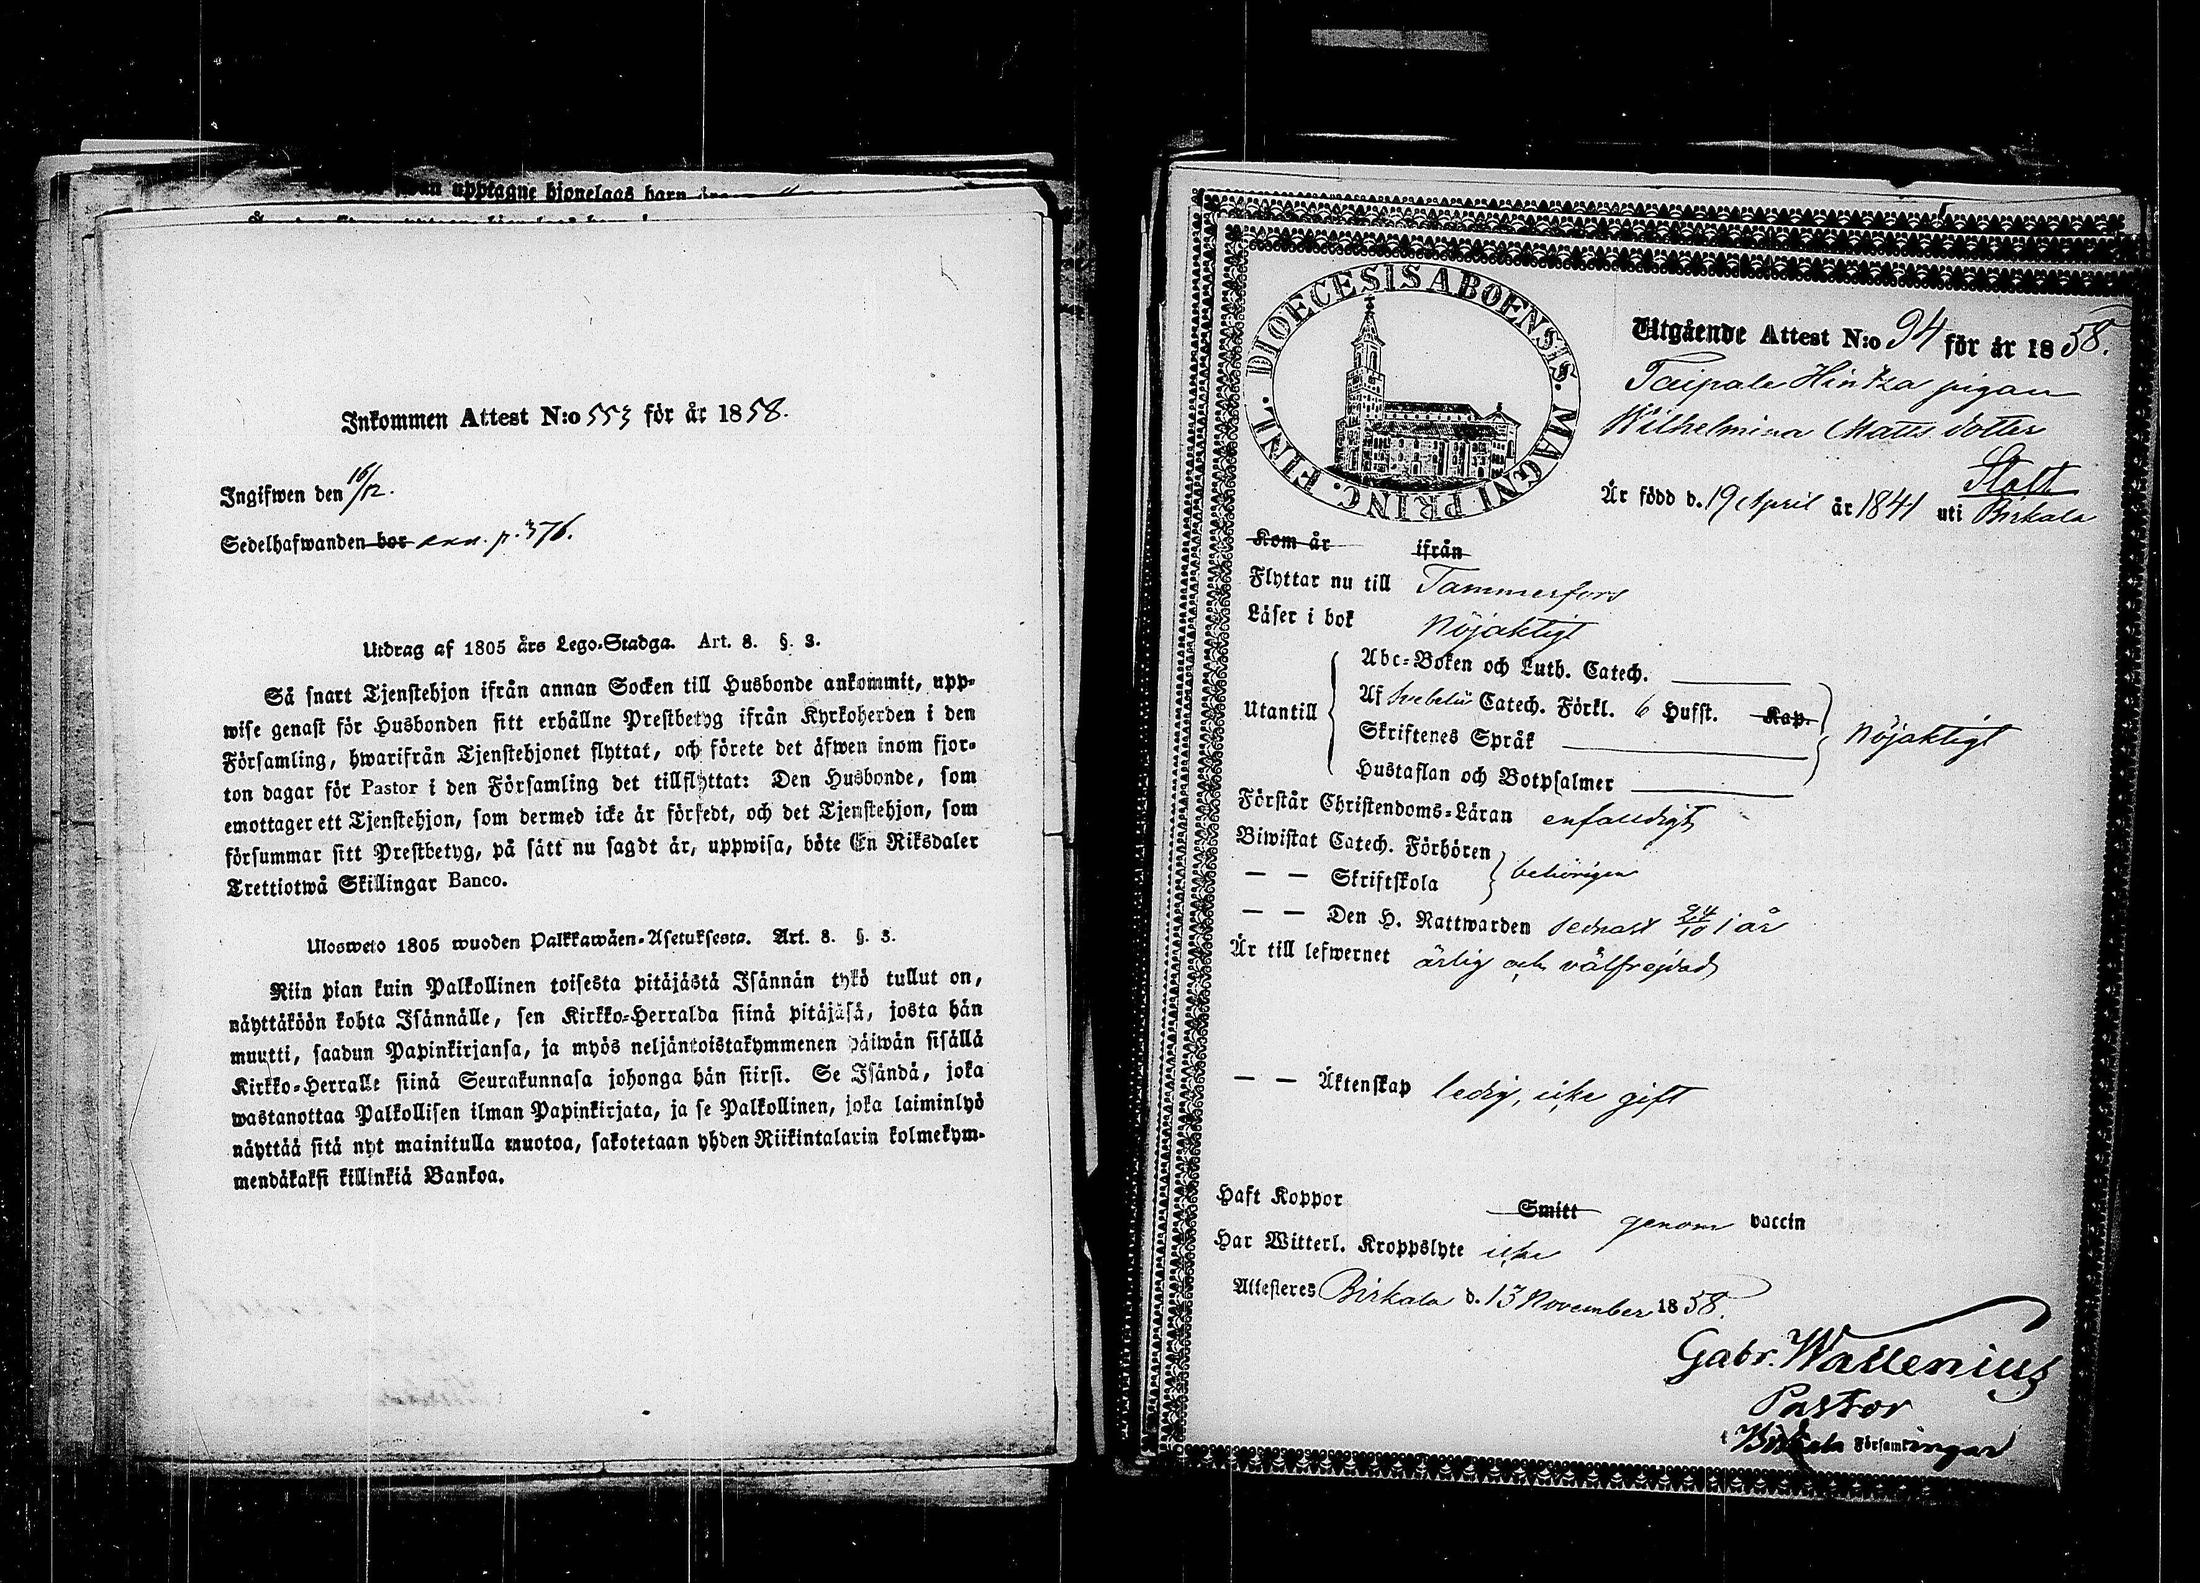 upptagne hjonelags barn
Inkommen Attest N:o 553 för år 1858.
Ingifwen den 16/12.
Sedelhafwanden bor ann. p. 376.
Utdrag af 1805 års Lego-Stadga. Art. 8. §. 3.
Så snart Tjenstehjon ifrån annan Socken till Husbonde ankommit, upp-
wise genast för Husbonden sitt erhållne Prestbetyg ifrån Kyrkoherden i den
Församling, hwarifrån Tjenstehjonet flyttat, och förete det äfwen inom fjor-
ton dagar för Pastor i den Församling det tillflyttat: Den Husbonde, som
emottager ett Tjenstehjon, som dermed icke är försedt, och det Tjenstehjon, som
försummar sitt Prestbetyg, på sätt nu sagdt är, uppwisa, böte En Riksdaler
Trettiotwå Skillingar Banco.
Ulosweto 1805 wuoden Palkkawäen-Asetuksesta. Art. 8. §. 3.
Niin pian kuin Palkollinen toisesta pitäjästä Isännän tykö tullut on,
näyttäköön kohta Isännälle, sen Kirkko-Herralda siinä pitäjäsä, josta hän
muutti, saadun Papinkirjansa, ja myös neljäntoistakymmenen päiwän sisällä
Kirkko-Herralle siinä Seurakunnasa johonga hän siirsi. Se Isändä, joka
wastanottaa Palkollisen ilman Papinkirjata, ja se Palkollinen, joka laiminlyö
näyttää sitä nyt mainitulla muotoa, sakotetaan yhden Riikintalarin kolmekym-
mendäkaksi killinkiä Bankoa.
DIOECESIS ABOENSIS. MAGNI PRINC. FINL.
Utgående Attest N:o 94 för år 1858.
Taipale Hintza pigan
Wilhelmina Matts dotter
Stolt
Är född d. 19 April år 1841 uti Birkala
Kom år ifrån
Flyttar nu till Tammerfors
Läser i bok nöjaktigt
Abc-Boken och Luth. Catech.
Utantill Af Svebelii Catech. Förkl. 6 Hufst. Kap. nöjaktigt
Skriftenes Språk
Hustaflan och Botpsalmer
Förstår Christendoms-Läran enfaldigt
Biwistat Catech. Förhören
— — Skriftskola behörigen
— — Den H. Nattwarden sednast 24/10 i år
Är till lefwernet ärlig och välfrejdad
— — Äktenskap ledig, icke gift
Haft Koppor Smitt genom vaccin
Har Witterl. Kroppslyte icke
Attesteres Birkala d. 13 November 1858.
Gabr. Wallenius
Pastor
i Birkala Församlingar